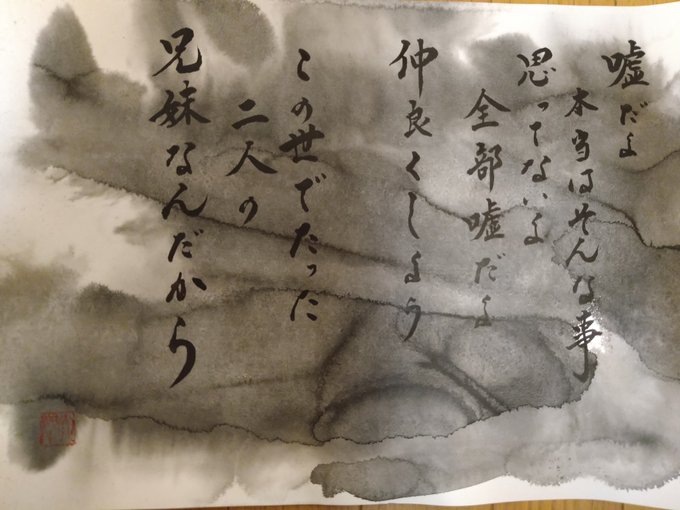 嘘だよ
本当はそんな事
思ってないよ
全部嘘だよ
仲良くしよう
この世でたった
二人の
兄妹なんだから